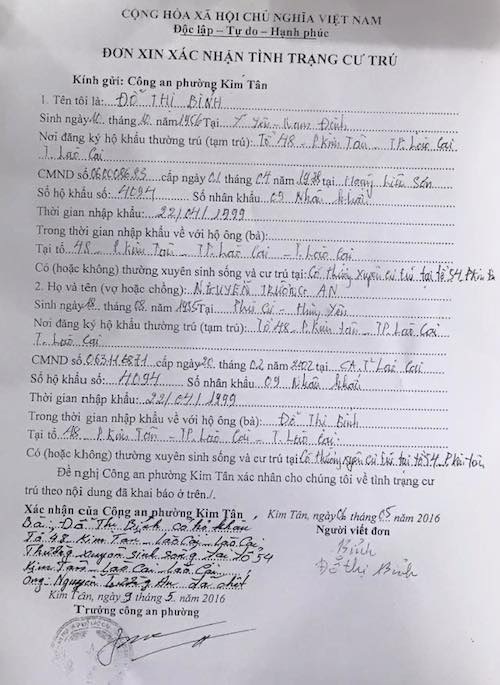 CỘNG HÒA XÃ HỘI CHỦ NGHĨA VIỆT NAM
Độc lập – Tự do – Hạnh phúc
ĐƠN XIN XÁC NHẬN TÌNH TRẠNG CƯ TRÚ
Kính gửi: Công an phường Kim Tân
1. Tên tôi là: ĐỖ THỊ BÌNH
Sinh ngày 10 tháng 10 năm 1956 Tại Ý Yên - Nam Định
Nơi đăng ký hộ khẩu thường trú (tạm trú): Tổ 48 - P. Kim Tân - TP. Lào Cai
T. Lào Cai
CMND số cấp ngày 01 tháng 04 năm 1978 tại Hoàng Liên Sơn
Số hộ khẩu số: 4094 Số nhân khẩu 09 Nhân khẩu
Thời gian nhập khẩu: 22/04/1999
Trong thời gian nhập khẩu về với hộ ông (bà):
Tại tổ 48 - P. Kim Tân - TP. Lào Cai - T. Lào Cai
Có (hoặc không) thường xuyên sinh sống và cư trú tại: Có thường xuyên cư trú tại tổ 54 P. Kim Tân
2. Họ và tên (vợ hoặc chồng): NGUYỄN TRƯỜNG AN
Sinh ngày 18 tháng 08 năm 1955 Tại Phù Cừ - Hưng Yên
Nơi đăng ký hộ khẩu thường trú (tạm trú): Tổ 48 - P. Kim Tân - TP. Lào Cai
T. Lào Cai
CMND số cấp ngày 20 tháng 02 năm 2002 tại CA. T. Lào Cai
Số hộ khẩu số: 4094 Số nhân khẩu 09 Nhân khẩu
Thời gian nhập khẩu: 22/04/1999
Trong thời gian nhập khẩu về với hộ ông (bà): Đỗ Thị Bình
Tại tổ 48 P. Kim Tân - TP Lào Cai - T. Lào Cai
Có (hoặc không) thường xuyên sinh sống và cư trú tại Có thường xuyên cư trú tại tổ 54 P. Kim Tân
Đề nghị Công an phường Kim Tân xác nhân cho chúng tôi về tình trạng cư
trú theo nội dung đã khai báo ở trên./.
Xác nhận của Công an phường Kim Tân
Bà: Đỗ Thị Bình có hộ khẩu
Tổ 48 Kim Tân - Lào Cai - Lào Cai
Thường xuyên sinh sống tại tổ 54
Kim Tân - Lào Cai - Lào Cai
Ông: Nguyễn Trường An đã chết
Kim Tân, ngày 9 tháng 5 năm 2016
Trưởng công an phường
Kim Tân, ngày 06 tháng 05 năm 2016
Người viết đơn
Bình
Đỗ Thị Bình